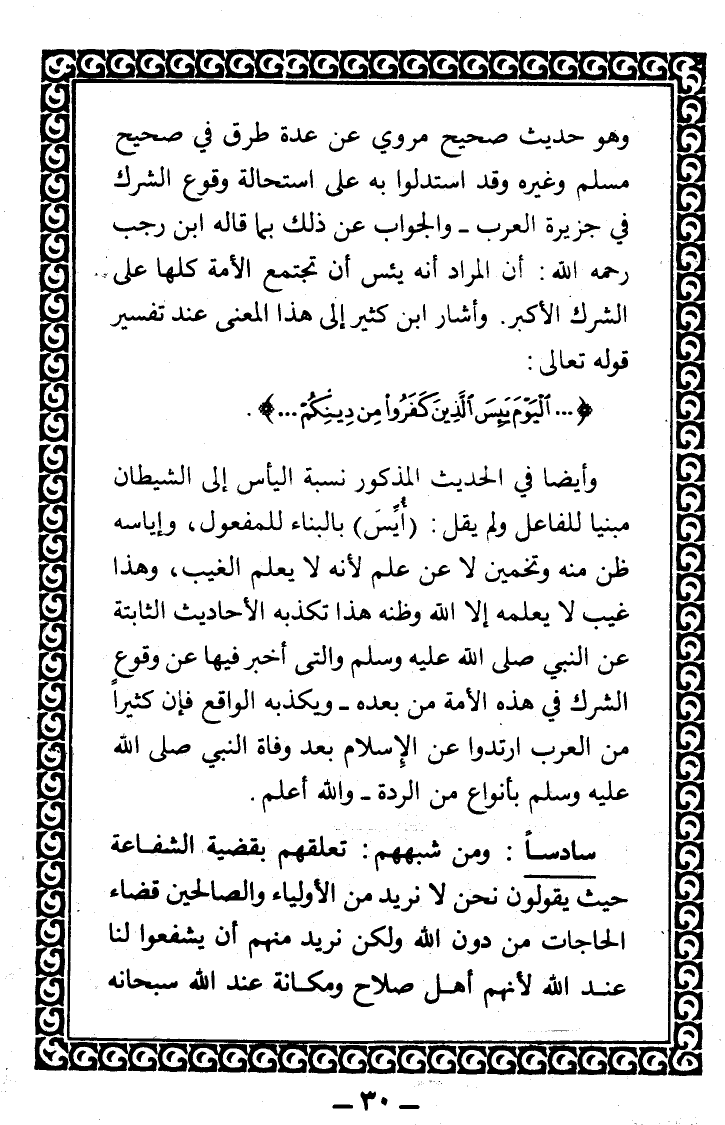 وهو حديث صحيح مروي عن عدة طرق في صحيح
مسلم وغيره وقد استدلوا به على استحالة وقوع الشرك
في جزيرة العرب ـ والجواب عن ذلك بما قاله ابن رجب
رحمه الله : أن المراد أنه يئس أن تجتمع الأمة كلها على
الشرك الأكبر. وأشار ابن كثير إلى هذا المعنى عند تفسير
قوله تعالى :
﴿... ٱلْيَوْمَ يَئِسَ ٱلَّذِينَ كَفَرُوا۟ مِن دِينِكُمْ ...﴾ .
وأيضا في الحديث المذكور نسبة اليأس إلى الشيطان
مبنيا للفاعل ولم يقل : (أُيِّسَ) بالبناء للمفعول، وإياسه
ظن منه وتخمين لا عن علم لأنه لا يعلم الغيب، وهذا
غيب لا يعلمه إلا الله وظنه هذا تكذبه الأحاديث الثابتة
عن النبي صلى الله عليه وسلم والتى أخبر فيها عن وقوع
الشرك في هذه الأمة من بعده ـ ويكذبه الواقع فإن كثيراً
من العرب ارتدوا عن الإسلام بعد وفاة النبي صلى الله
عليه وسلم بأنواع من الردة ـ والله أعلم .
سادسـاً : ومن شبههم : تعلقهم بقضية الشفـاعة
حيث يقولون نحن لا نريد من الأولياء والصالحين قضاء
الحاجات من دون الله ولكن نريد منهم أن يشفعوا لنا
عنـد الله لأنهم أهـل صلاح ومكـانة عند الله سبحانه
ـ ٣٠ ـ